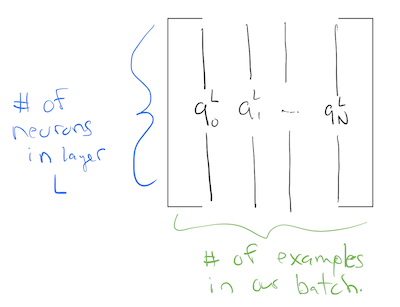 # of
neurons
in layer
L
a₀ᴸ a₁ᴸ ... a_Nᴸ
# of examples
in our batch.